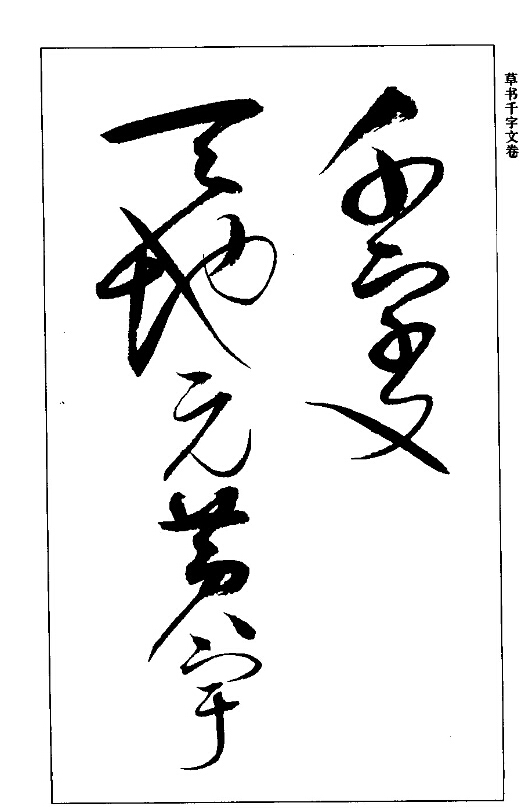 草书千字文卷
千字文
天地元黄宇